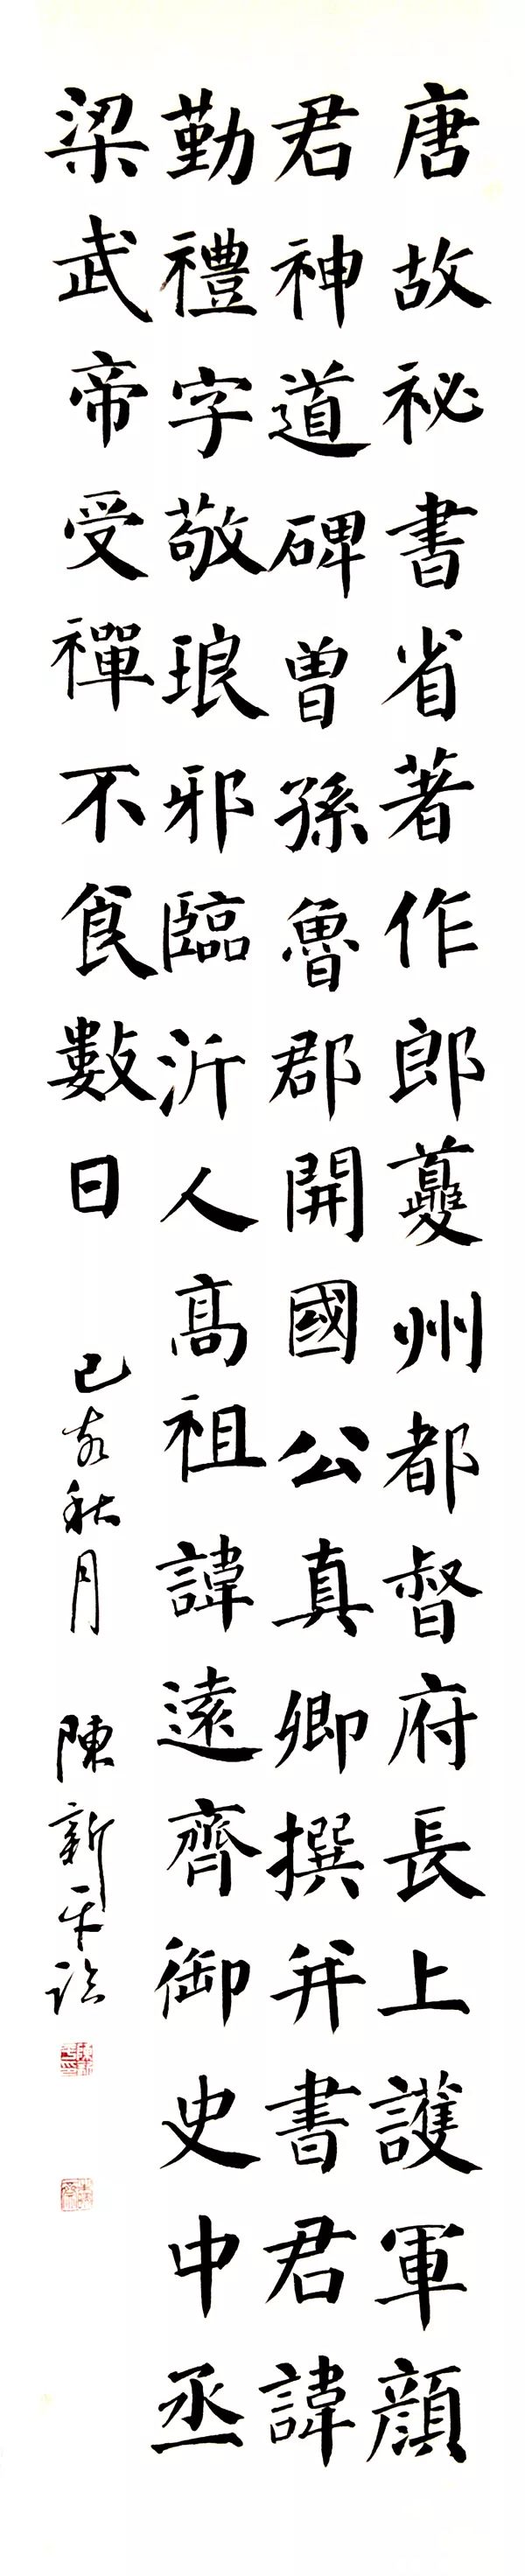 唐故祕書省著作郎夔州都督府長上護軍顔
君神道碑曾孫魯郡開國公真卿撰并書君諱
勤禮字敬琅邪臨沂人高祖諱遠齊御史中丞
梁武帝受禪不食數日
己亥秋月 陳新平臨